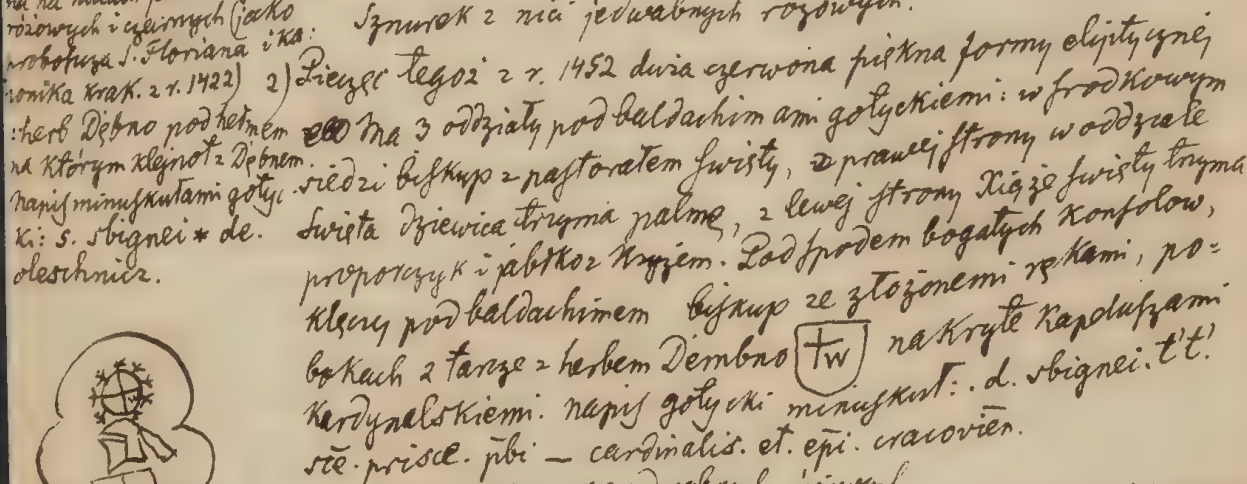 różowych i czarnych (jako
proboszcza S. Floriana i ka:
nonika Krak. z r. 1422)
:herb Dębno pod hełmem
na którym klejnot z Dębnem.
Napis minuskułami gotyc
ki: s. sbignei * de.
oleschnicz.
Sznurek z nici jedwabnych różowych.
2) Pieczęć tegoż z r. 1452 duża czerwona piękna formy eliptycznej
Ma 3 oddziały pod baldachimami gotyckiemi: w środkowym
siedzi biskup z pastorałem święty, z prawej strony w oddziale
Święta dziewica trzyma palmę, z lewej strony Xiąże święty trzyma
proporczyk i jabłko z krzyżem. Pod spodem bogatych Konsolow,
klęczy pod baldachimem biskup ze złożonemi rękami, po=
bokach 2 tarcze z herbem Dembno nakryte Kapeluszami
Kardynalskiemi. napis gotycki minuskuł: . d. sbignei. t't'.
scē. prisce. p̄bi — cardinalis. et. ep̄i. cracovień.